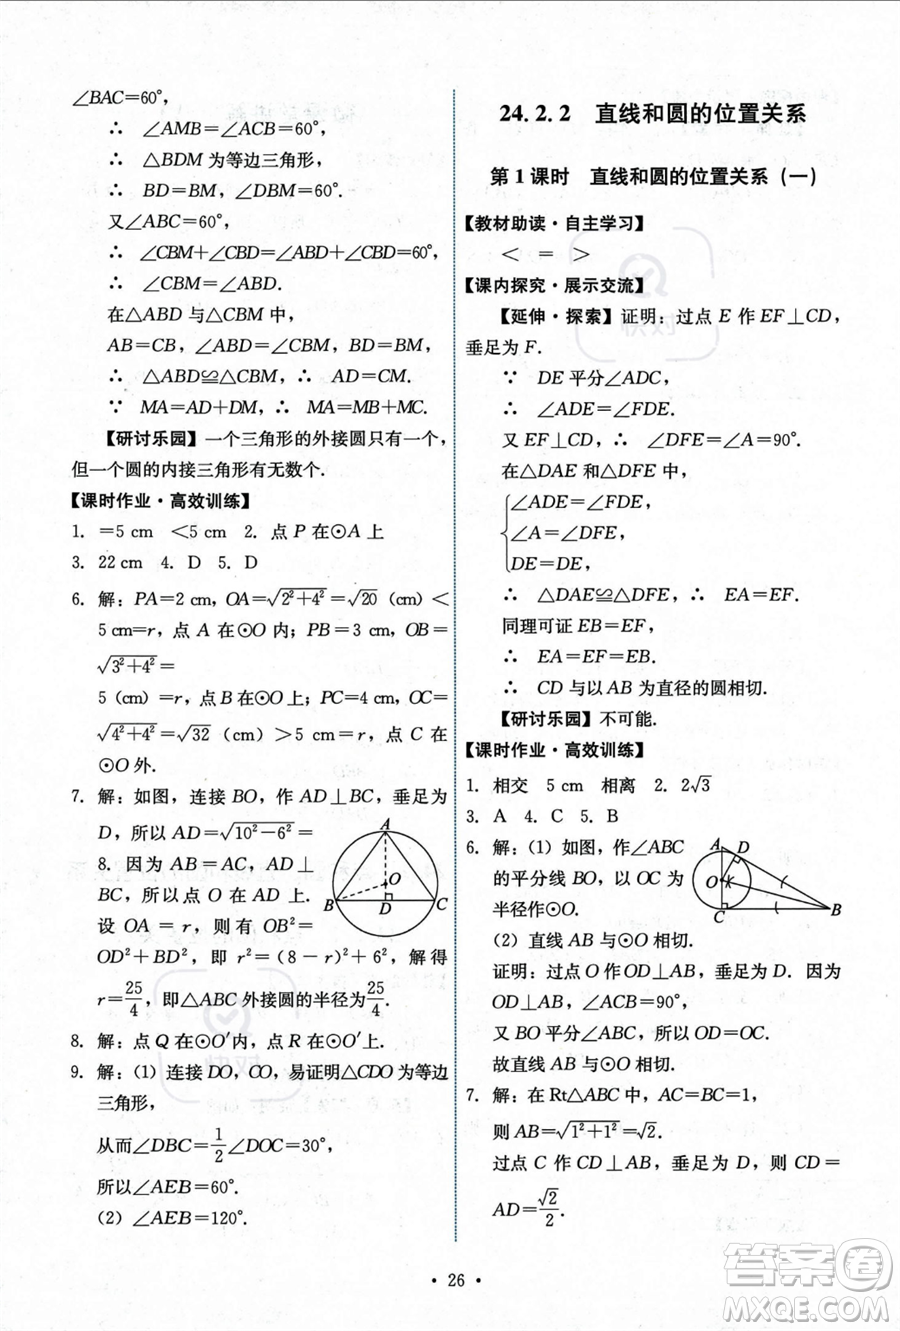 ∠BAC=60°,
∴ ∠AMB=∠ACB=60°,
∴ △BDM 为等边三角形,
∴ BD=BM,∠DBM=60°.
又∠ABC=60°,
∴ ∠CBM+∠CBD=∠ABD+∠CBD=60°,
∴ ∠CBM=∠ABD.
在△ABD 与△CBM 中,
AB=CB,∠BAD=∠BCM,
∴ △ABD≌△CBM, ∴ AD=CM.
∵ MA=AD+DM, ∴ MA=MB+MC.
【研讨乐园】一个三角形的外接圆只有一个,
但一个圆的内接三角形有无数个.
【课时作业·高效训练】
1. =5 cm <5 cm 2. 点 P 在⊙A 上
3. 22 cm 4. D 5. D
6. 解:PA=2 cm,OA=√(2²+4²)=√20 (cm)<
5 cm=r,点 A 在⊙O 内;PB=3 cm,OB=
√(3²+4²)=
5(cm)=r,点 B 在⊙O 上;PC=4 cm,OC=
√(4²+4²)=√32 (cm)>5 cm=r,点 C 在
⊙O 外.
7. 解:如图,连接 BO,作 AD⊥BC,垂足为
D,所以 AD=√(10²-6²)=
8. 因为 AB=AC,AD⊥
BC,所以点 O 在 AD 上.
设 OA=r,则有 OB²=
OD²+BD²,即 r²=(8-r)²+6²,解得
r=25/4,即△ABC 外接圆的半径为25/4.
A
O
B
D
C
8. 解:点 Q 在⊙O′内,点 R 在⊙O′上.
9. 解:(1)连接 DO,CO,易证明△CDO 为等边
三角形,
从而∠DBC=1/2∠DOC=30°,
所以∠AEB=60°.
(2)∠AEB=120°.
24.2.2 直线和圆的位置关系
第 1 课时 直线和圆的位置关系(一)
【教材助读·自主学习】
< = >
【课内探究·展示交流】
【延伸·探索】证明:过点 E 作 EF⊥CD,
垂足为 F.
∵ DE 平分∠ADC,
∴ ∠ADE=∠FDE.
又 EF⊥CD, ∴ ∠DFE=∠A=90°.
在△DAE 和△FDE 中,
∠ADE=∠FDE,
∠A=∠DFE,
DE=DE,
∴ △DAE≌△DFE, ∴ EA=EF.
同理可证 EB=EF,
∴ EA=EF=EB.
∴ CD 与以 AB 为直径的圆相切.
【研讨乐园】不可能.
【课时作业·高效训练】
1. 相交 5 cm 相离 2. 2√3
3. A 4. C 5. B
6. 解:(1)如图,作∠ABC
的平分线 BO,以 OC 为
半径作⊙O.
A
D
O
C
B
(2)直线 AB 与⊙O 相切.
证明:过点 O 作 OD⊥AB,垂足为 D. 因为
OD⊥AB,∠ACB=90°,
又 BO 平分∠ABC,所以 OD=OC.
故直线 AB 与⊙O 相切.
7. 解:在 Rt△ABC 中,AC=BC=1,
则 AB=√(1²+1²)=√2.
过点 C 作 CD⊥AB,垂足为 D,则 CD=
AD=√2/2.
· 26 ·
快对
快对
答案圈
MXQE.COM